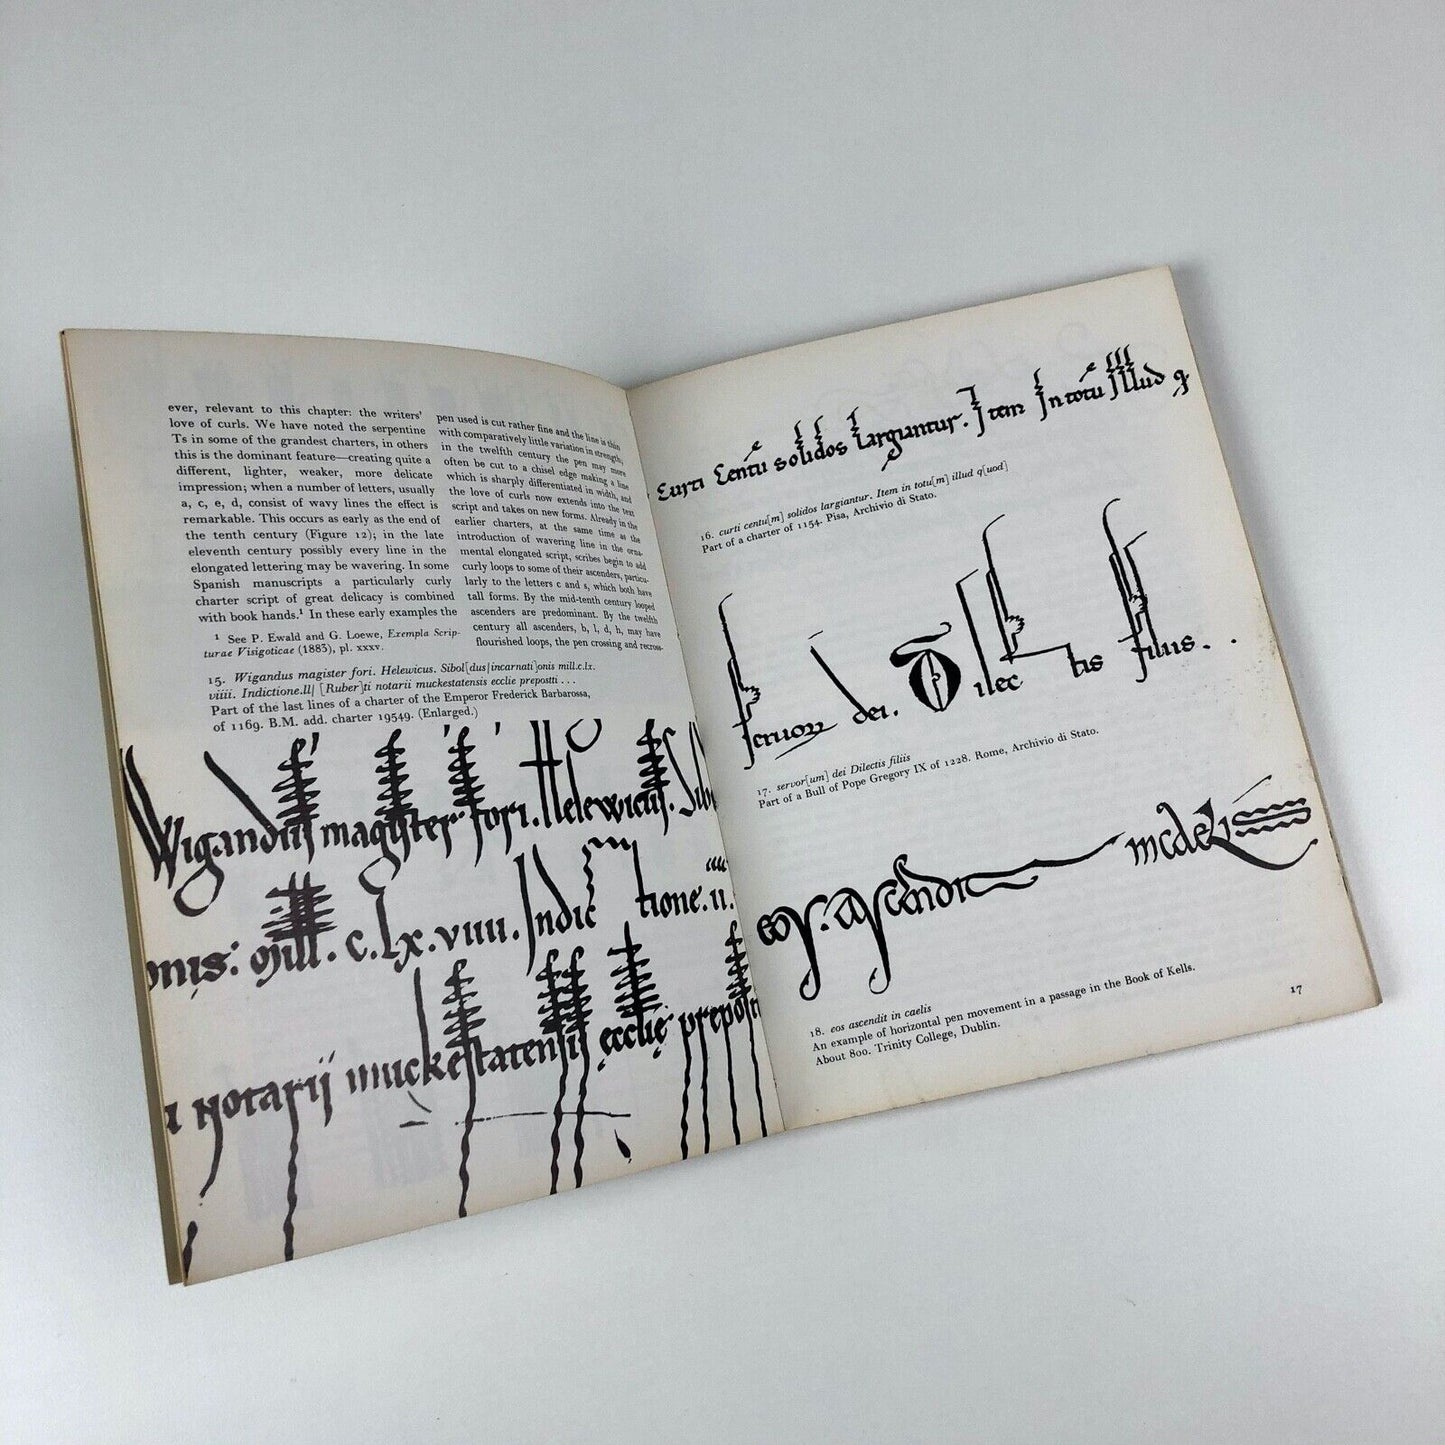 ever, relevant to this chapter: the writers'
love of curls. We have noted the serpentine
Ts in some of the grandest charters, in others
this is the dominant feature—creating quite a
different, lighter, weaker, more delicate
impression; when a number of letters, usually
a, c, e, d, consist of wavy lines the effect is
remarkable. This occurs as early as the end of
the tenth century (Figure 12); in the late
eleventh century possibly every line in the
elongated lettering may be wavering. In some
Spanish manuscripts a particularly curly
charter script of great delicacy is combined
with book hands.¹ In these early examples the
¹ See P. Ewald and G. Loewe, Exempla Scrip-
turae Visigoticae (1883), pl. xxxv.
pen used is cut rather fine and the line is thin
with comparatively little variation in strength;
in the twelfth century the pen may more
often be cut to a chisel edge making a line
which is sharply differentiated in width, and
the love of curls now extends into the text
script and takes on new forms. Already in the
earlier charters, at the same time as the
introduction of wavering line in the orna-
mental elongated script, scribes begin to add
curly loops to some of their ascenders, particu-
larly to the letters c and s, which both have
tall forms. By the mid-tenth century looped
ascenders are predominant. By the twelfth
century all ascenders, b, l, d, h, may have
flourished loops, the pen crossing and recross-
15. Wigandus magister fori. Helewicus. Sibol[dus|incarnati]onis mill.c.lx.
viiii. Indictione.ll| [Ruber]ti notarii muckestatensis ecclie prepostti . . .
Part of the last lines of a charter of the Emperor Frederick Barbarossa,
of 1169. B.M. add. charter 19549. (Enlarged.)
Wigandus magister fori. Helewicus. Sib
onis. mill. c. lx. viiii. Indictione. ii.
i notarii muckestatensis ecclie preposti
curti centu solidos largiantur. Item In totu illud q
16. curti centu[m] solidos largiantur. Item in totu[m] illud q[uod]
Part of a charter of 1154. Pisa, Archivio di Stato.
seruor dei. Dilectis filiis. . .
17. servor[um] dei Dilectis filiis
Part of a Bull of Pope Gregory IX of 1228. Rome, Archivio di Stato.
eos. ascendit
incaeli
18. eos ascendit in caelis
An example of horizontal pen movement in a passage in the Book of Kells.
About 800. Trinity College, Dublin.
17